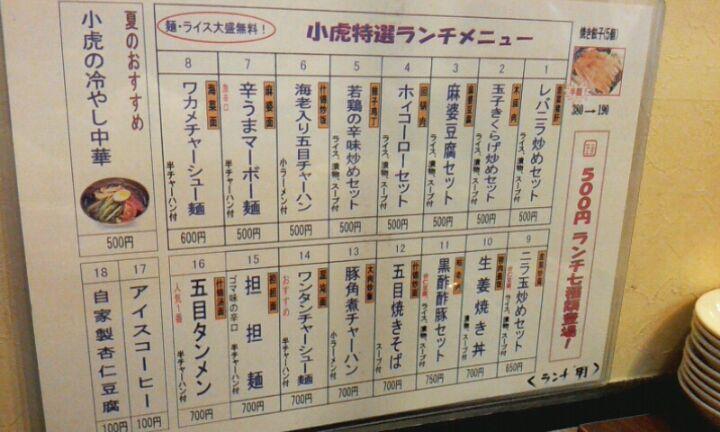 麺・ライス大盛無料！
小虎特選ランチメニュー
焼き餃子(5個)
半額
380→190
500円 ランチ七種類登場！
1
レバニラ炒めセット
ライス、漬物、スープ付
500円
2
木須肉
玉子きくらげ炒めセット
ライス、漬物、スープ付
500円
3
麻婆豆腐
麻婆豆腐セット
ライス、漬物、スープ付
500円
4
回鍋肉
ホイコーローセット
ライス、漬物、スープ付
500円
5
辣子鶏丁
若鶏の辛味炒めセット
ライス、漬物、スープ付
500円
6
什锦炒飯
海老入り五目チャーハン
小ラーメン付
500円
7
麻婆面
激辛口
辛うまマーボー麺
半チャーハン付
500円
8
海菜面
ワカメチャーシュー麺
半チャーハン付
600円
夏のおすすめ
小虎の冷やし中華
500円
9
ニラ玉炒めセット
ライス、漬物、スープ付
650円
10
生姜焼き丼
漬物、スープ付
700円
11
黒酢酢豚セット
ライス、漬物、スープ付
750円
12
什锦炒面
五目焼きそば
スープ付
700円
13
大肉炒飯
豚角煮チャーハン
小ラーメン付
700円
14
雲吞面
おすすめ
ワンタンチャーシュー麺
半チャーハン付
700円
15
担担面
ゴマ味の辛口
担担麺
半チャーハン付
700円
16
什锦湯面
人気1番
五目タンメン
半チャーハン付
700円
17
アイスコーヒー
100円
18
自家製杏仁豆腐
100円